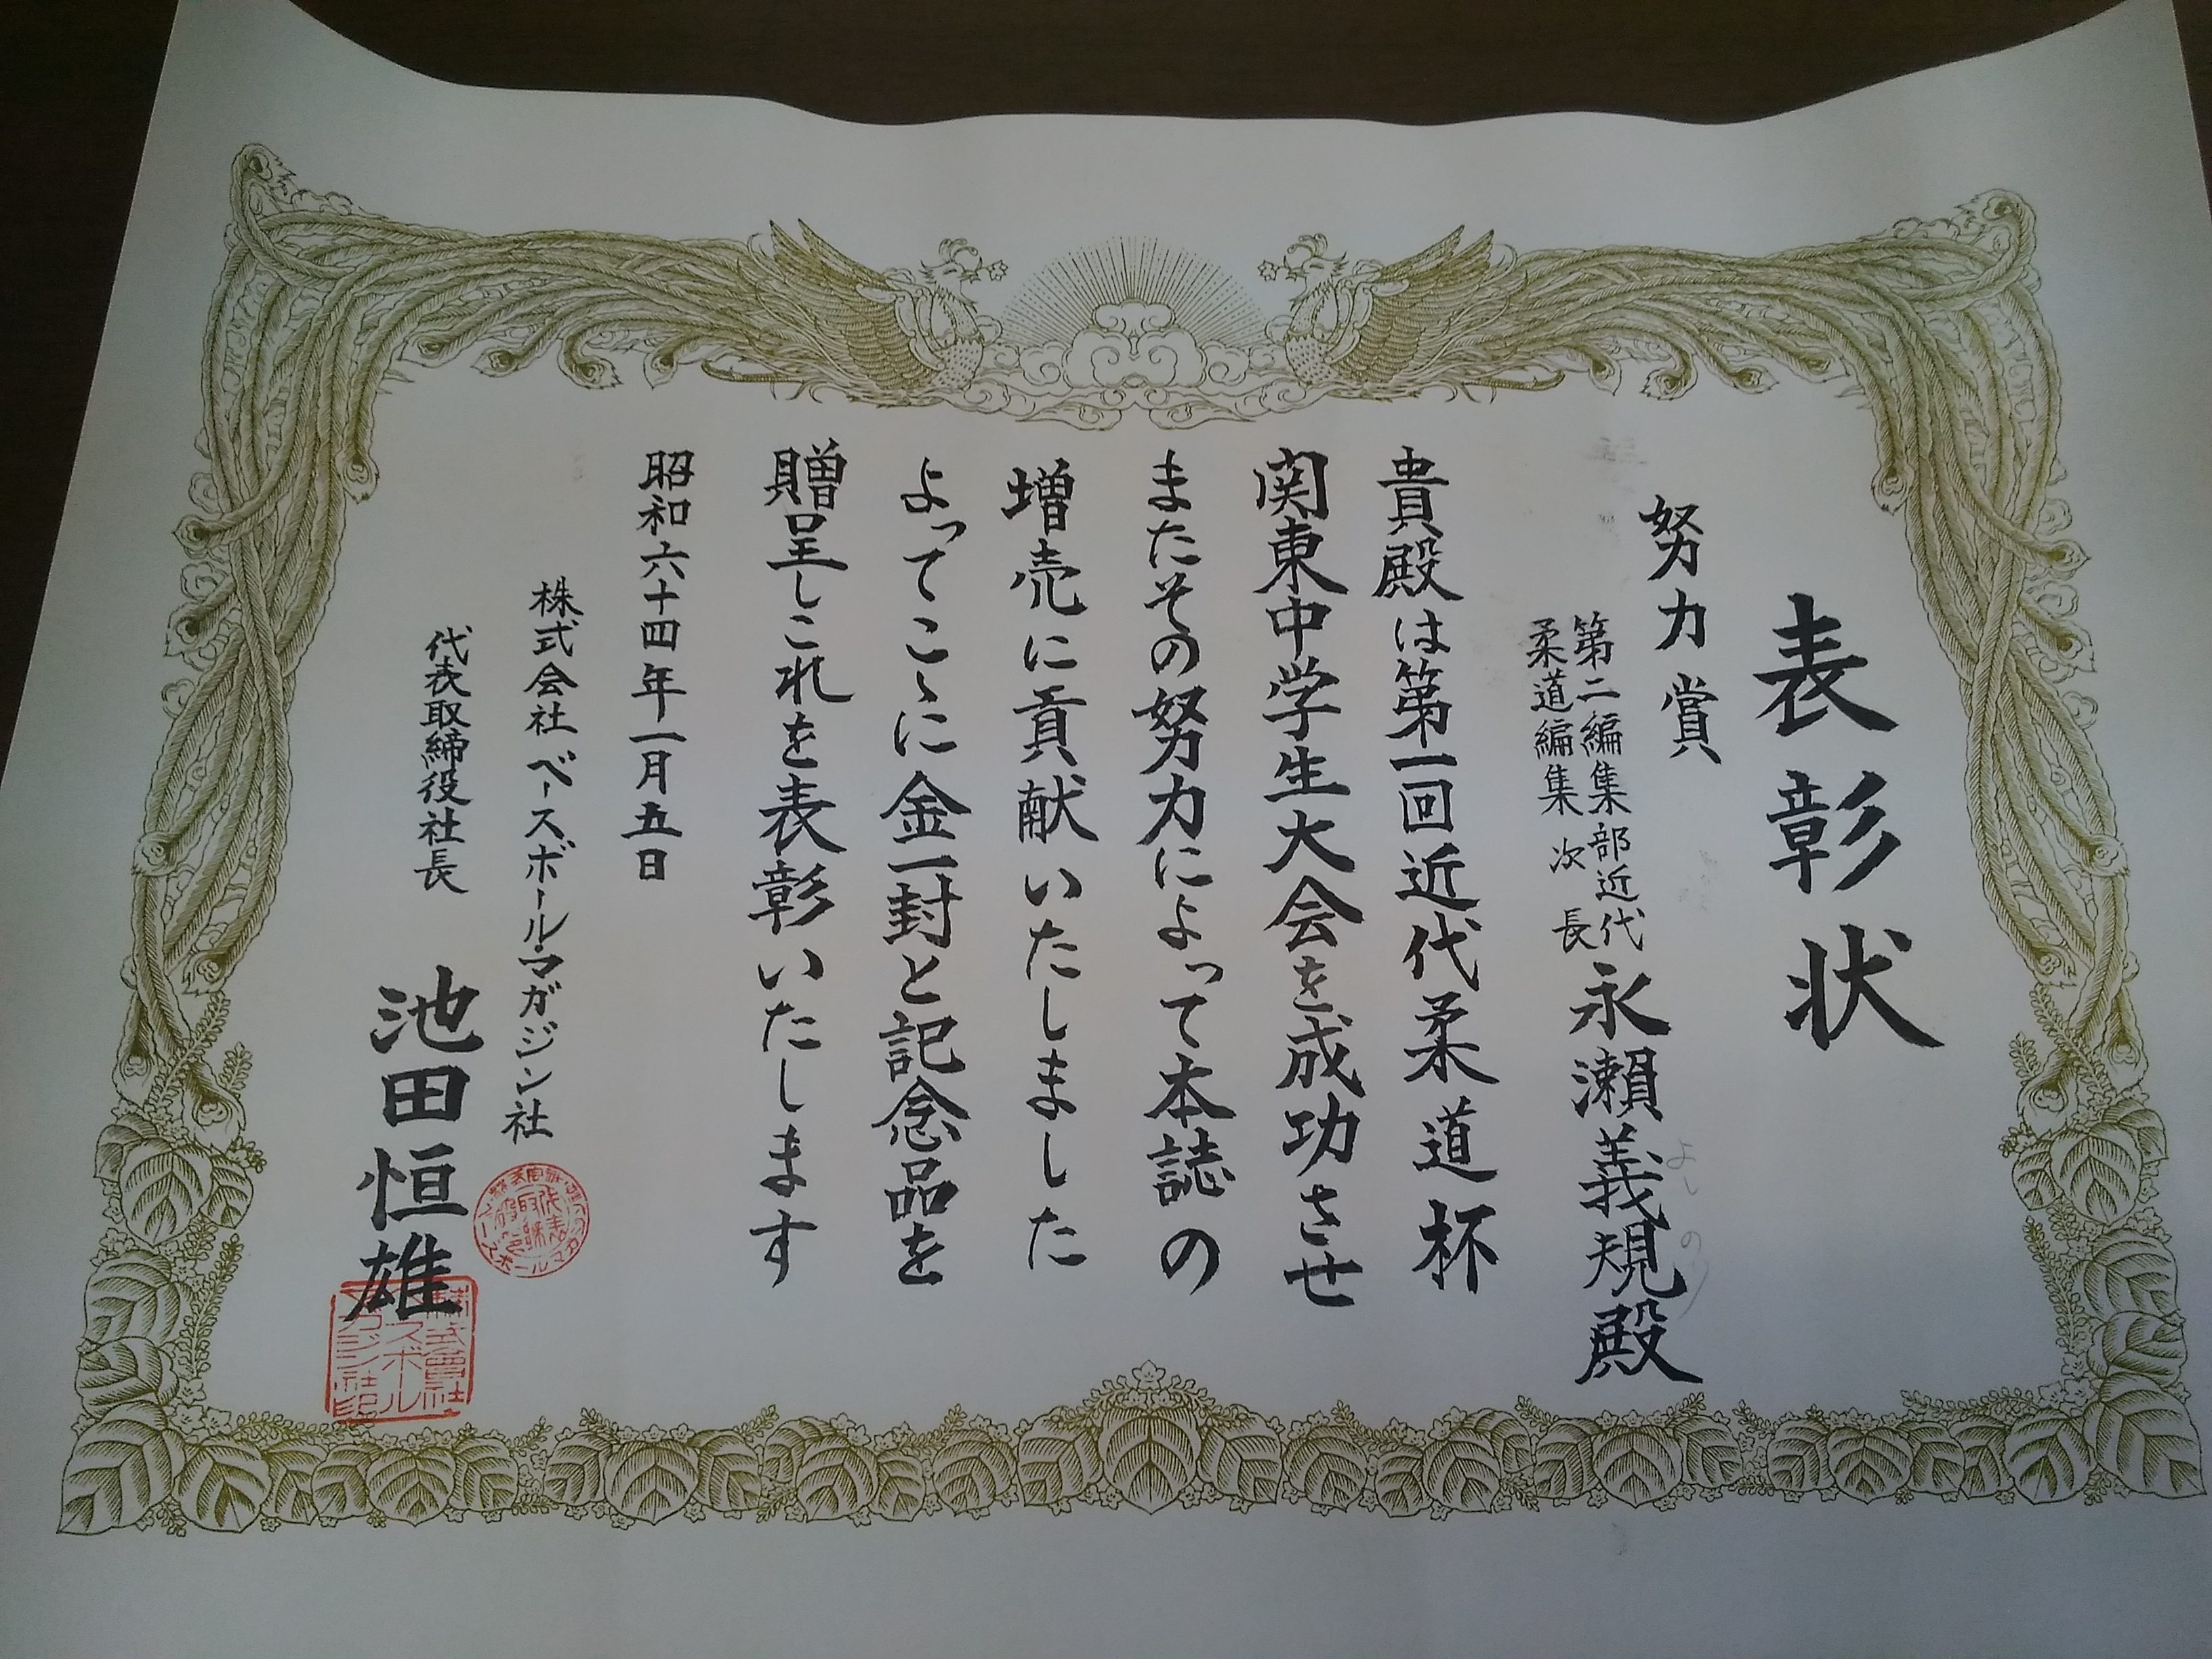 表彰状
努力賞
第二編集部近代
柔道編集次長
永瀬義規殿
よしのり
貴殿は第一回近代柔道杯
関東中学生大会を成功させ
またその努力によって本誌の
増売に貢献いたしました
よってこゝに金一封と記念品を
贈呈しこれを表彰いたします
昭和六十四年一月五日
株式会社ベースボール・マガジン社
代表取締役社長
池田恒雄